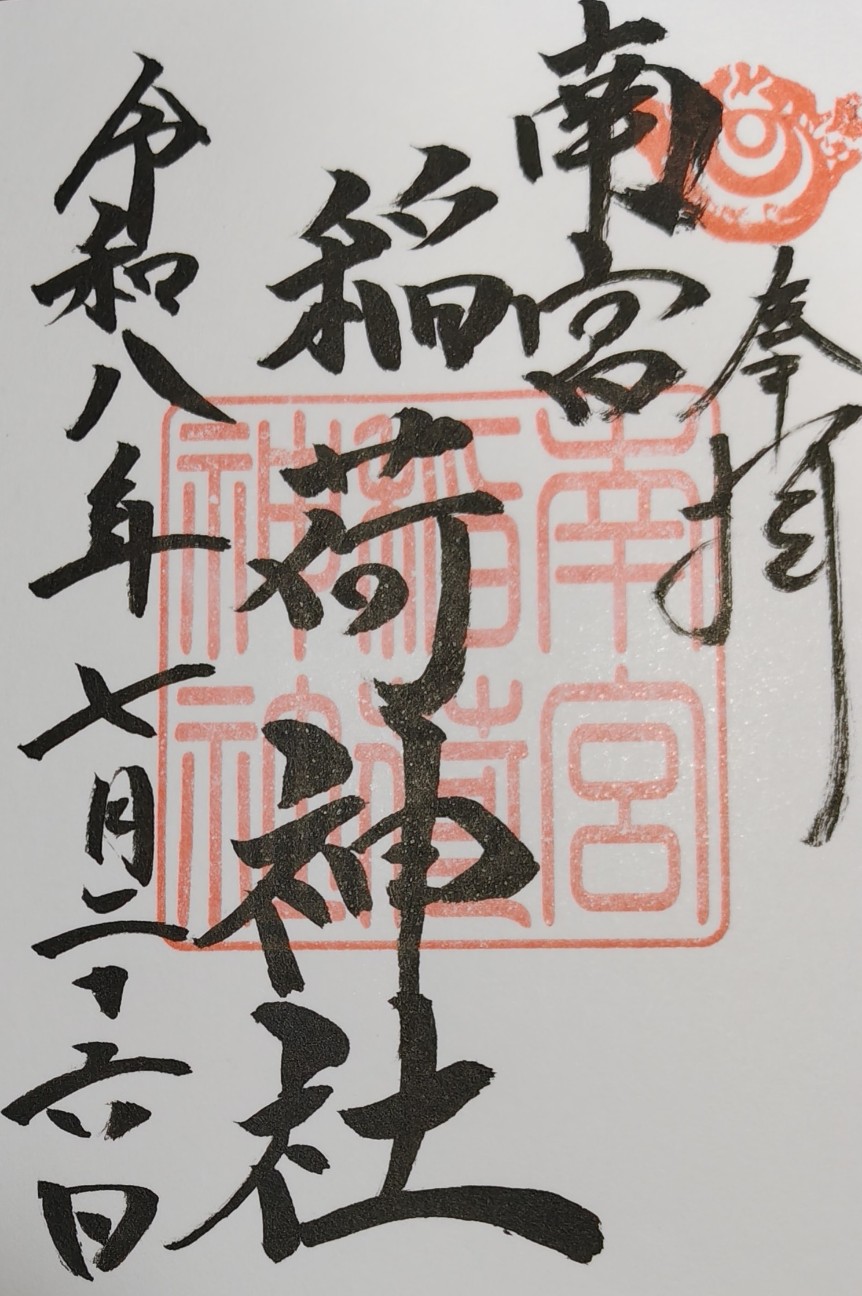 奉拝
南宮
稲荷神社
令和八年七月二十六日
南宮
稲荷
神社